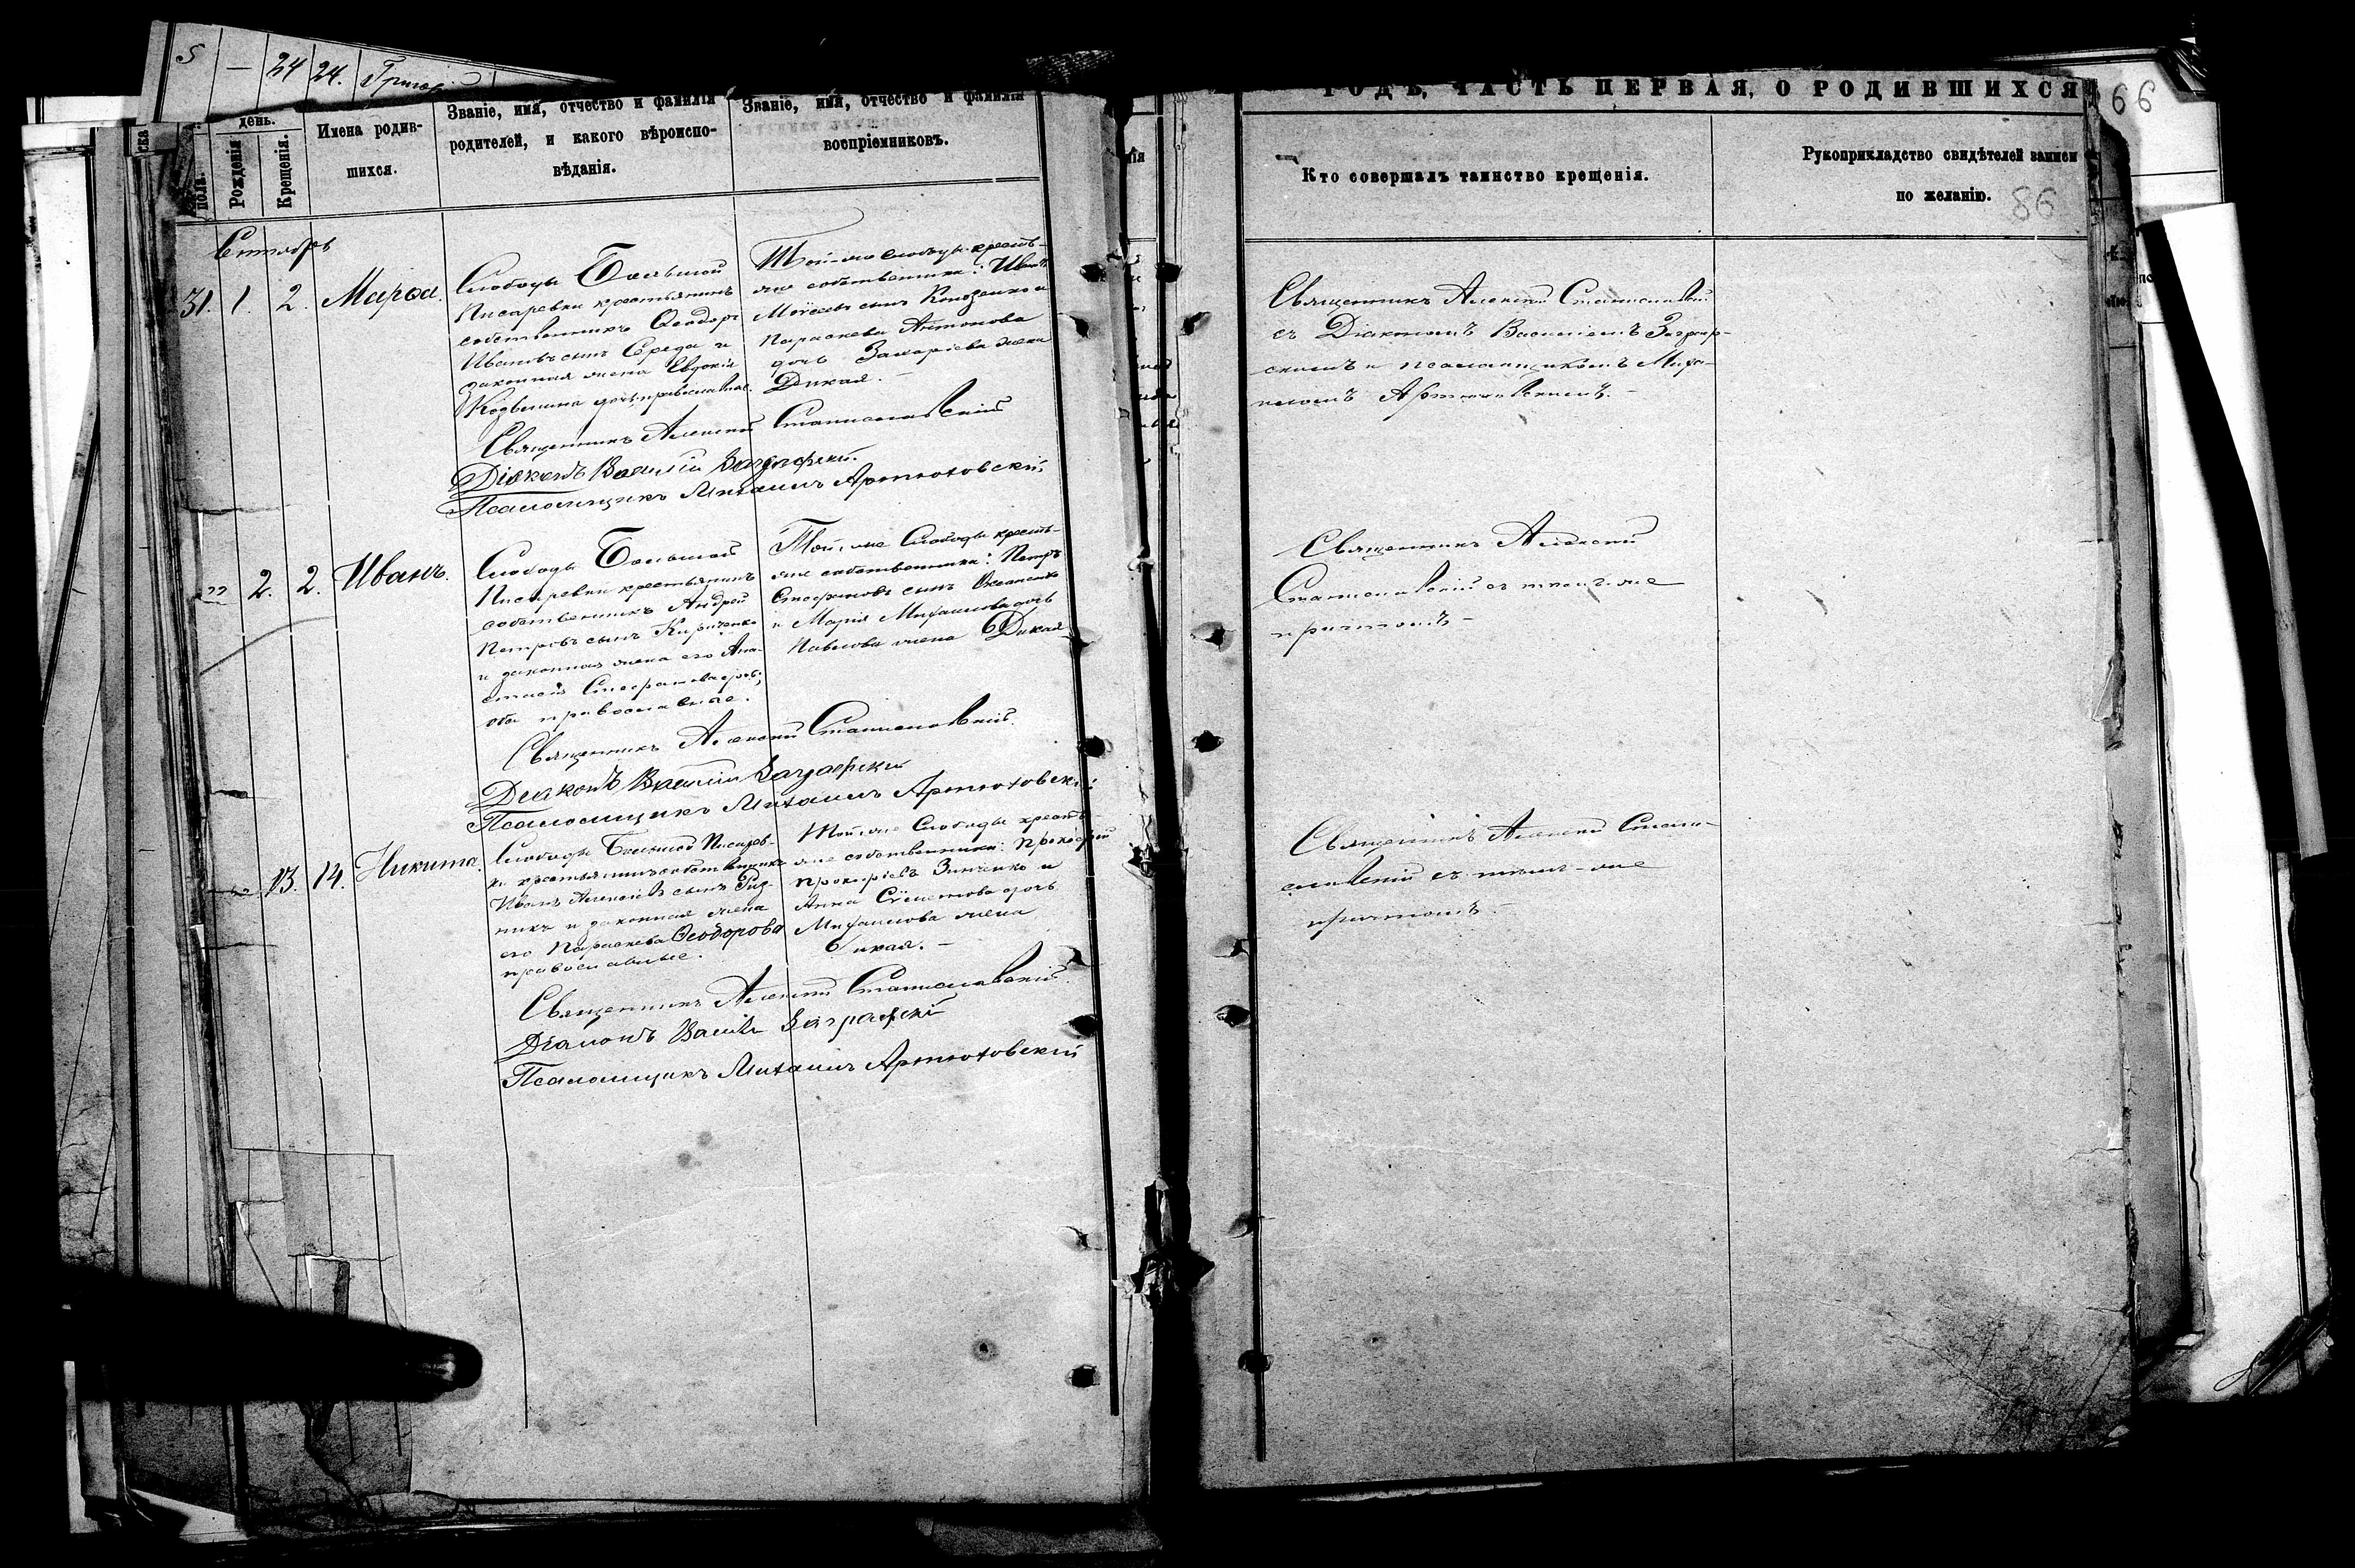 5 — 24 24.
день.
Рожденія
Крещенія.
пола.
Имена родив-
шихся.
Званіе, имя, отчество и фамилія
родителей, и какого вѣроиспо-
вѣданія.
Званіе, имя, отчество и фамилія
воспріемниковъ.
31. 1. 2. Марѳа.
Слободы Большой
Писаревки крестьянинъ
собственникъ Ѳеодоръ
Ивановъ сынъ Середа и
законная жена Евдокія
дочь
Той-же слободы кресть-
яне собственники: Иванъ
Моѵсеевъ сынъ
Параскева Антонова
дочь Захаріева жена
Дикая. —
Священникъ Алексій Станиславскій
Діаконъ Василій
Псаломщикъ Михаилъ Артюховскій
" 2. 2. Иванъ.
Слободы Большой
Писаревки крестьянинъ
собственникъ Андрей
Петровъ сынъ Кириченко
и законная жена его Ана-
стасія
оба православные.
Той-же Слободы кресть-
яне собственники: Петръ
Стефановъ сынъ
и Марія Михаилова дочь
Павлова жена Дикая
Священникъ Алексій Станиславскій.
Діаконъ Василій
Псаломщикъ Михаилъ Артюховскій
13. 14. Никита.
Слободы Большой Писарев-
ки крестьянинъ собственникъ
Иванъ Алексіевъ сынъ Руд-
никъ и законная жена
его Параскева Ѳеодорова
православные.
Той-же Слободы кресть-
яне собственники: Прокофій
Прокофіевъ Зинченко и
Анна дочь
Михаилова жена
Дикая. —
Священникъ Алексій Станиславскій.
Діаконъ Василій
Псаломщикъ Михаилъ Артюховскій
ГОДЪ, ЧАСТЬ ПЕРВАЯ, О РОДИВШИХСЯ
66
Кто совершалъ таинство крещенія.
Рукоприкладство свидѣтелей записи
по желанію.
86
Священникъ Алексій Станиславскій
съ Діакономъ Василіемъ
и псаломщикомъ Миха-
иломъ Артюховскимъ. —
Священникъ Алексій
Станиславскій съ тѣмъ-же
причтомъ —
Священникъ Алексій Стани-
славскій съ тѣмъ-же
причтомъ.